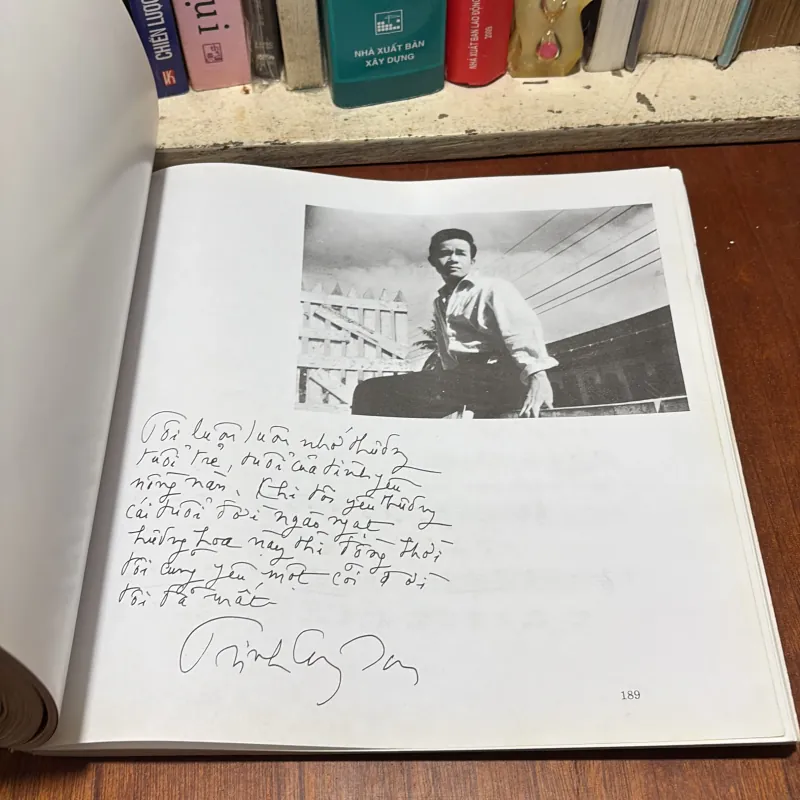 CHIẾN LƯỢC
ụi
NHÀ XUẤT BẢN
XÂY DỰNG
NHÀ XUẤT BẢN LAO ĐỘNG
2005
Tôi luôn luôn nhớ thương
tuổi trẻ, tuổi của tình yêu
nồng nàn. Khi tôi yêu thương
cái tuổi đời ngào ngạt
hương hoa này thì đồng thời
tôi cũng yêu một cõi đời
tôi đã mất
Trịnh Công Sơn
189